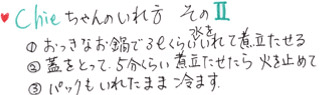 ♥ Chieちゃんのいれ方 そのⅡ
① おっきなお鍋で3ℓくらい水をいれて煮立たせる
② 蓋をとって、5分くらい煮立たせたら 火を止めて
③ パックもいれたまま冷ます。